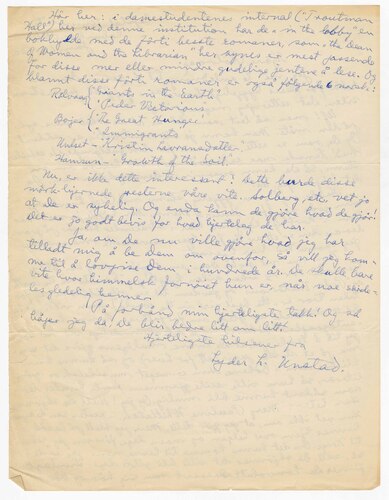 Hør her: i damestudentenes internat ("Troutman
Hall") her ved denne institution har de - in the lobby - en
bokhylde med de førti beste romaner, som "the Dean
of Women and the Librarian" her synes er mest passende
for disse mer eller mindre gudelige jentene å lese. Og
blandt disse førti romaner er også følgende 6 norske:
Rølvaag { "Giants in the Earth"
"Peder Victorious"
Bojer { "The Great Hunger"
"Emmigrants
Undset - "Kristin Lavransdatter"
Hamsun - "Growth of the Soil"
Nu, er ikke dette interessant! Dette burde disse
mørkhjernede presterne våre vite. Solberg, etc. vet jo
at De er sykelig. Og enda kann de gjøre hvad de gjør!
Det er jo godt bevis for hvad hjertelag de har.
Ja, om De nu ville gjøre hvad jeg har
tilladt mig å be Dem om ovenfor, så vil jeg kom-
me til å lovprise Dem i hundrede år. De skulle bare
vite hvor himmelsk fornøiet hun er når noe særde-
les gledelig hender.
På forhånd min hjerteligste takk! Og så
håper jeg da De blir bedre litt om litt.
Hjerteligste hilsener fra
Lyder L. Unstad.